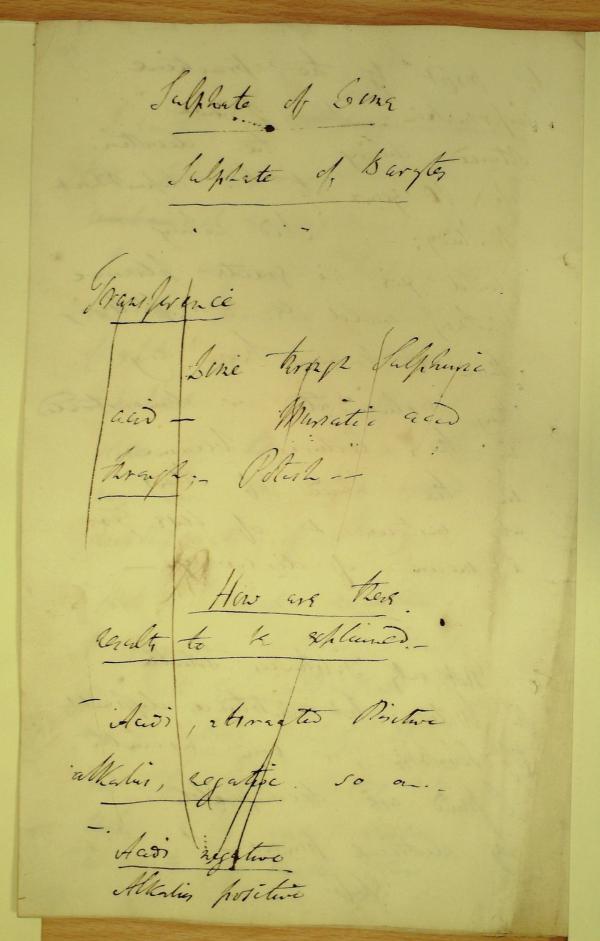 Sulphate of Lime
Sulphate of Barytes
Transference
Lime through Sulphuric
acid — Muriatic acid
through;- Potash —
How are these
results to be explained.-
- Acids, attracted Positive
alkalies, negative. so on..
- Acids negative
Alkalies positive